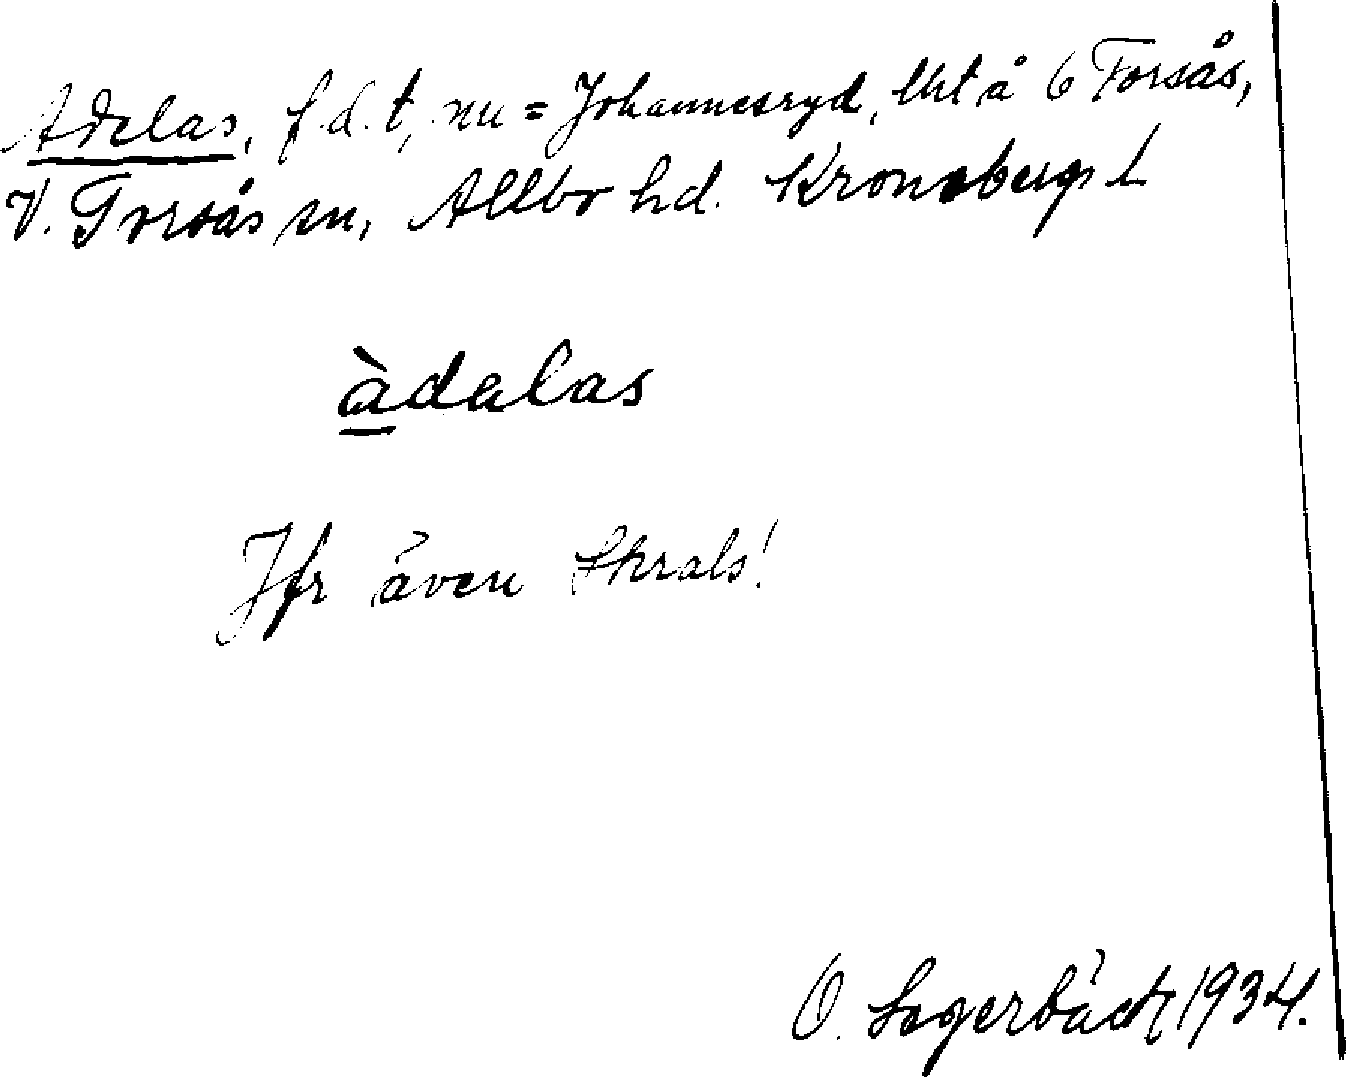 Adelas, f.d.t, nu = Johannesryd, lht å 6 Torsås,
V. Torsås sn, Allbo hd. Kronobergs L
àdalas
Jfr även Skrals!
O. Lagerbäck 1934.